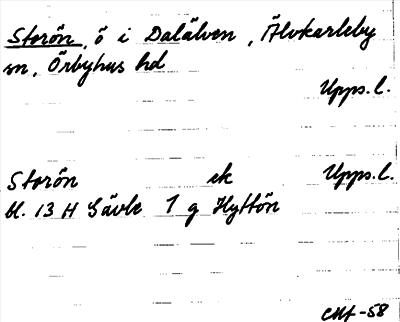 Storön, ö i Dalälven, Älvkarleby
sn, Örbyhus hd
Upps. l.
Storön ek Upps. l.
bl. 13 H Gävle 1 g Hyttön
CMt -58